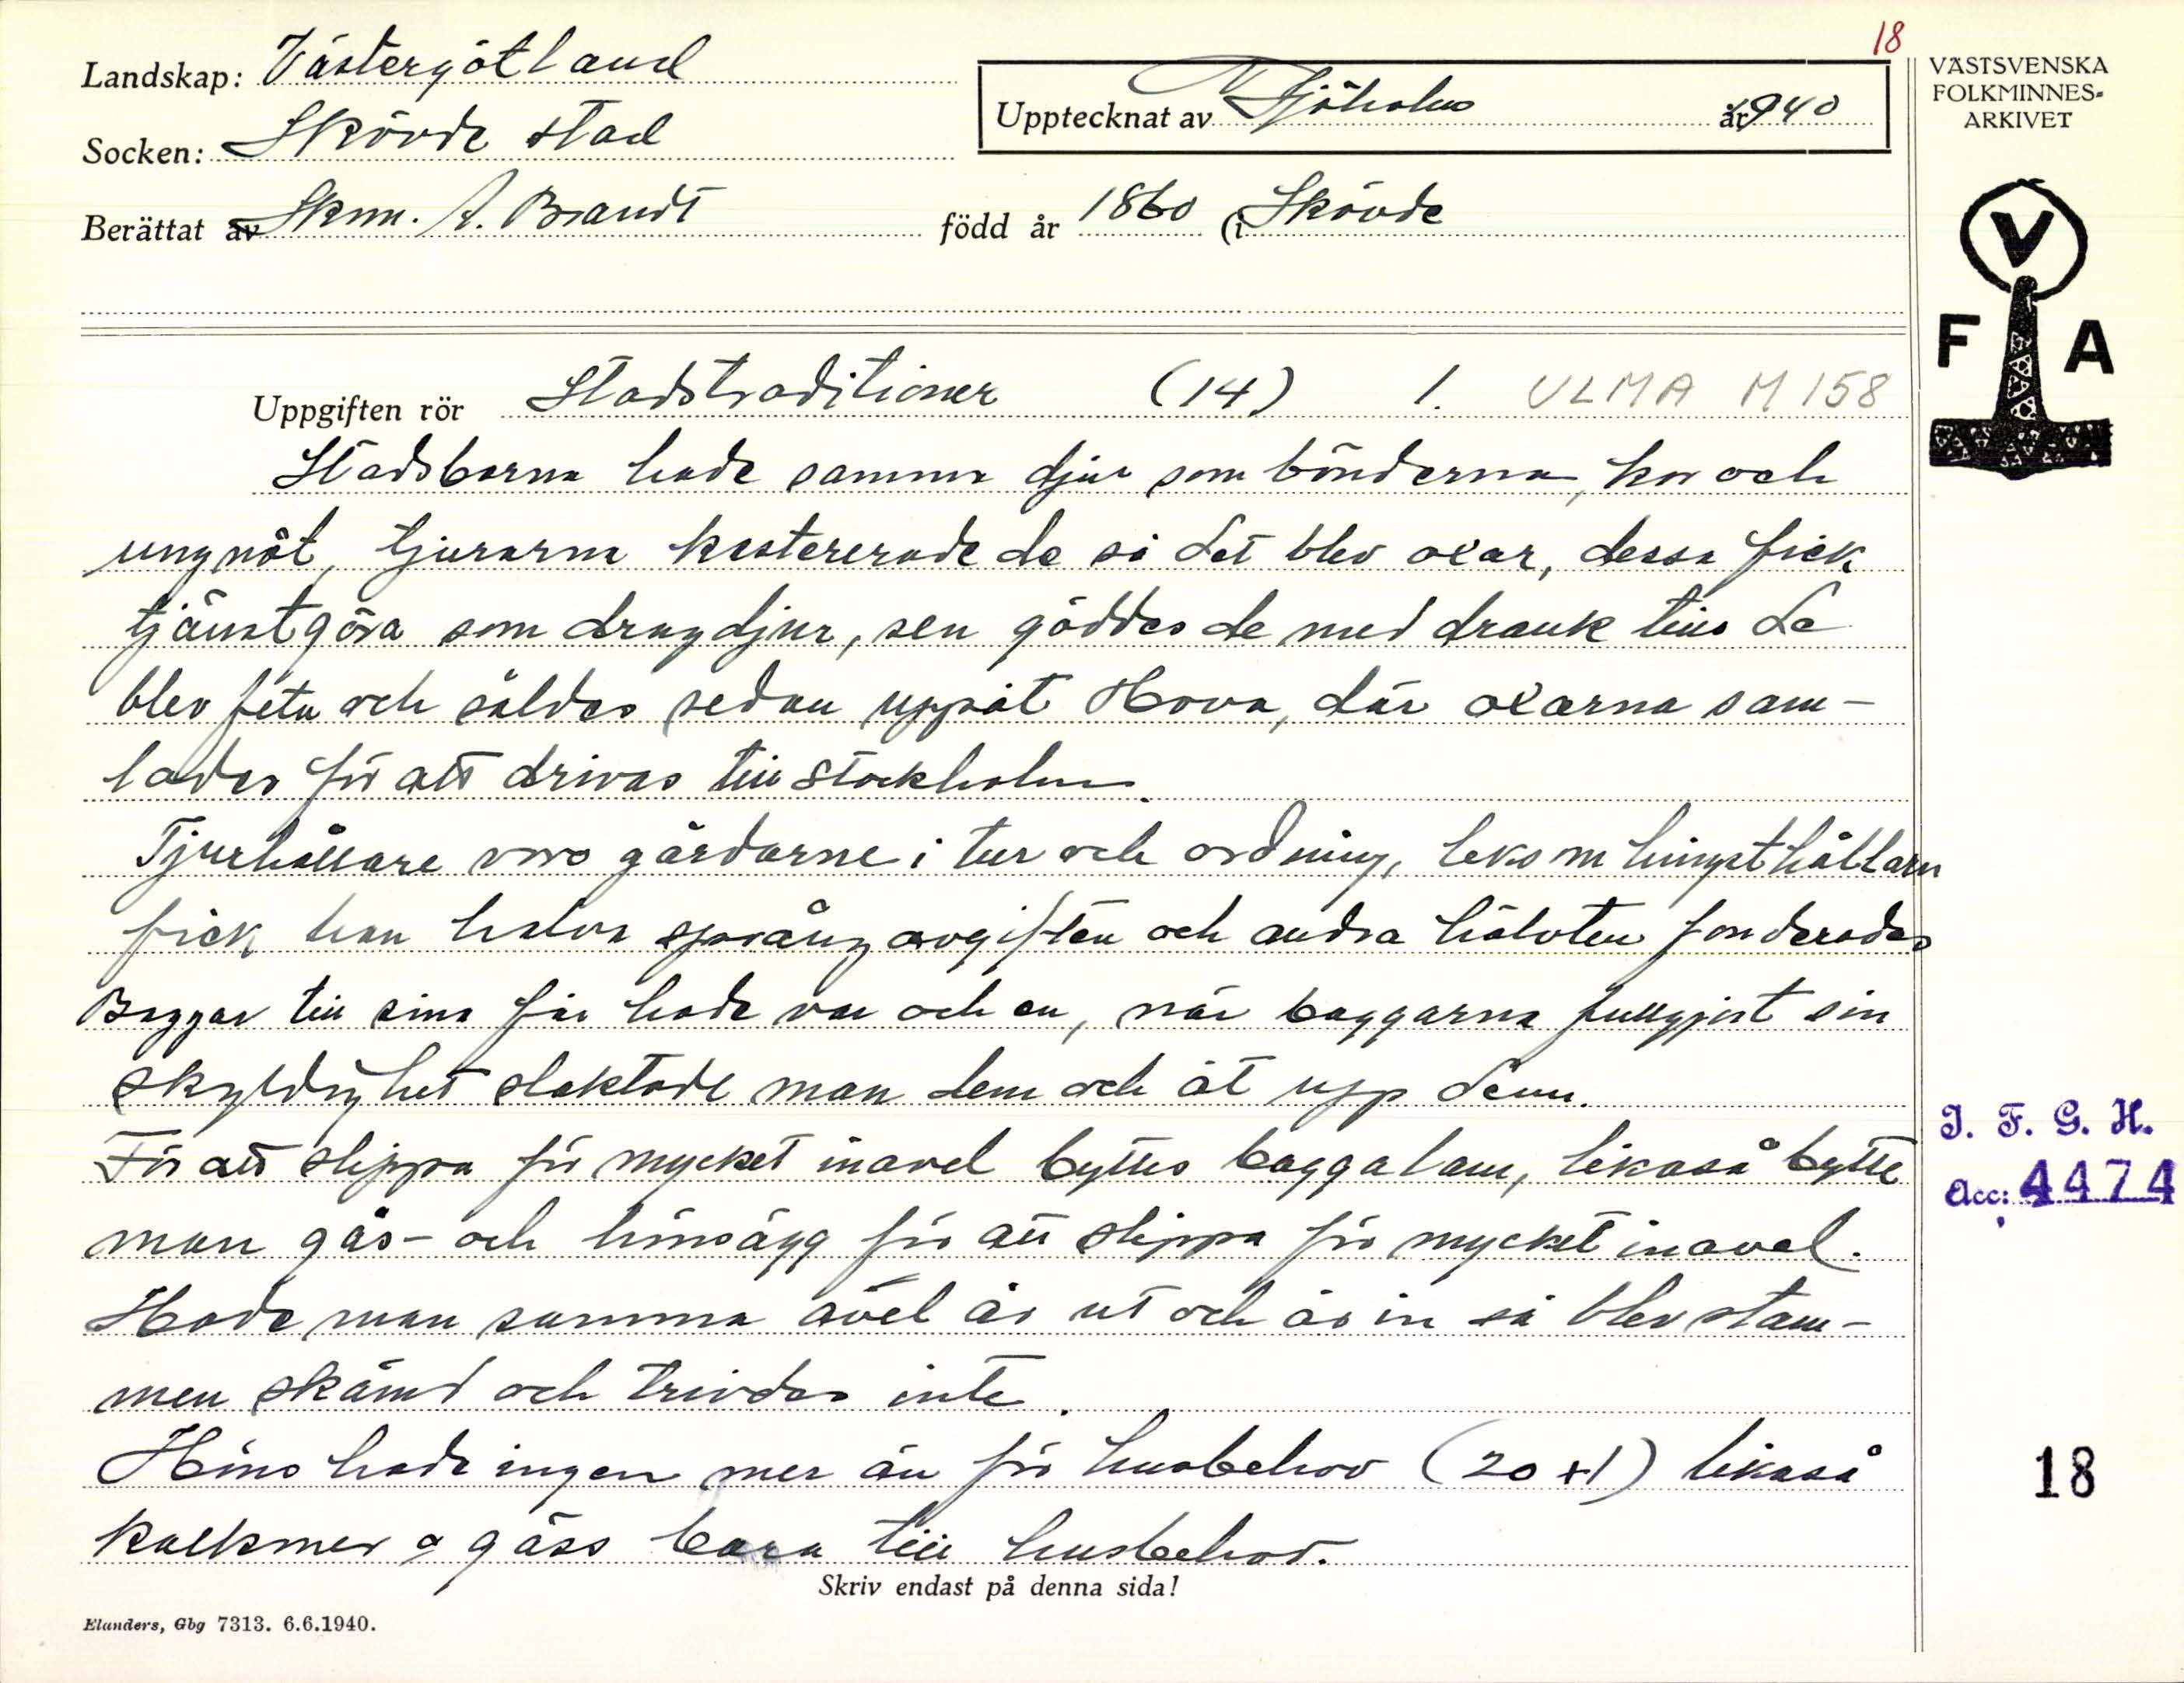 18
Landskap: Västergötland
Socken: Skövde stad
Upptecknat av N Sjöholm år 1940
Berättat av Skm. A. Brandt född år 1860 (i Skövde
VÄSTSVENSKA
FOLKMINNES-
ARKIVET
V
F A
Uppgiften rör Stadstraditioner (14) 1. ULMA M 158
Stadsborna hade samma djur som bönderna, kor och
ungnöt, tjurarna kastererade de så det blev oxar, dessa fick
tjänstgöra som dragdjur, sen göddes de med drank tills de
blev feta och såldes sedan uppåt Hova, där oxarna sam-
lades för att drivas till Stockholm.
Tjurhållare voro gårdarne i tur och ordning, liksom hingsthållarn
fick han halva språngavgiften och andra hälvten fonderades
Baggar till sina får hade var och en, när baggarna fullgjort sin
skyldighet slaktade man dem och åt upp dem.
För att slippa för mycket inavel byttes baggalam, likaså bytte
man gås- och hönsägg för att slippa för mycket inavel.
Hade man samma avel år ut och år in så blev stam-
men skämd och trivdes inte.
Höns hade ingen mer än för husbehov (20 + 1) likaså
kalkoner o gäss bara till husbehov.
Skriv endast på denna sida!
Elanders, Gbg 7313. 6.6.1940.
I. F. G. H.
Acc: 4474
18